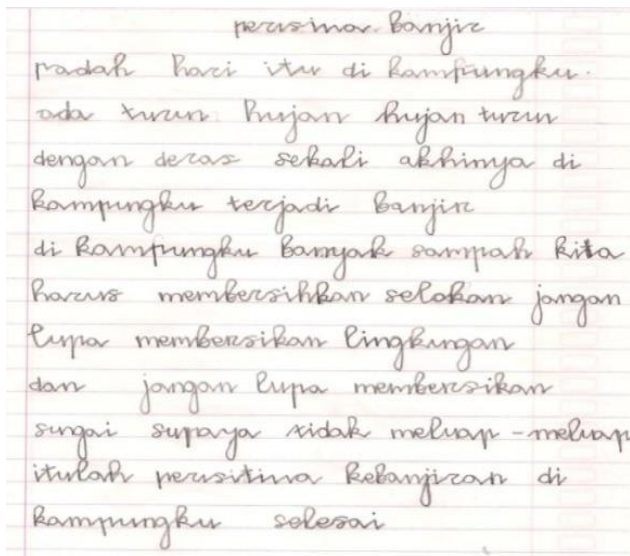 perisinar Banjir
padah hari itu di kampungku.
ada turun hujan hujan turun
dengan deras sekali akhinya di
kampungku terjadi Banjir
di kampungku Banyak sampah kita
harus membersihkan selokan jangan
lupa membersikan lingkungan
dan jangan lupa membersikan
sungai supaya tidak meluap-meluap
itulah perisitiwa kebanjiran di
kampungku selesai